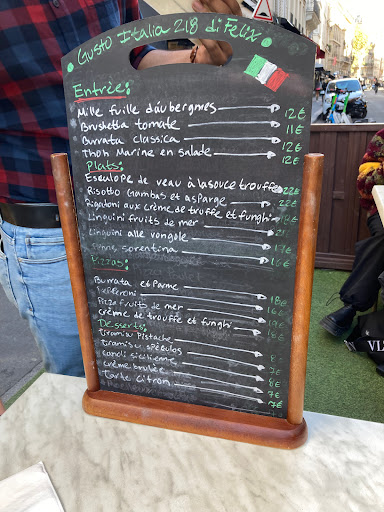 Gusto Italia 218 di Felix
Entrée:
Mille fuille d'áubergmes 12€
Brushetta tomate 11€
Burrata classica 12€
Thon Marine en salade 12€
Plats:
Escalope de veau à lasouce trouffe 22€
Risotto Gambas et asparge 22€
Rigatoni aux crème de truffe et funghi
Linguini fruits de mer 21
Linguini alle vongole 17€
Penne sorentina 16€
Pizzas:
Burrata et Parme 18€
16€
Pizza fruits de mer 19€
crème de trouffe et funghi
Desserts:
Tiramisu Pistache 8€
Tiramisu spéculos
Canoli sicilienne 8€
crème brulée 7€
Tarte citron 7€